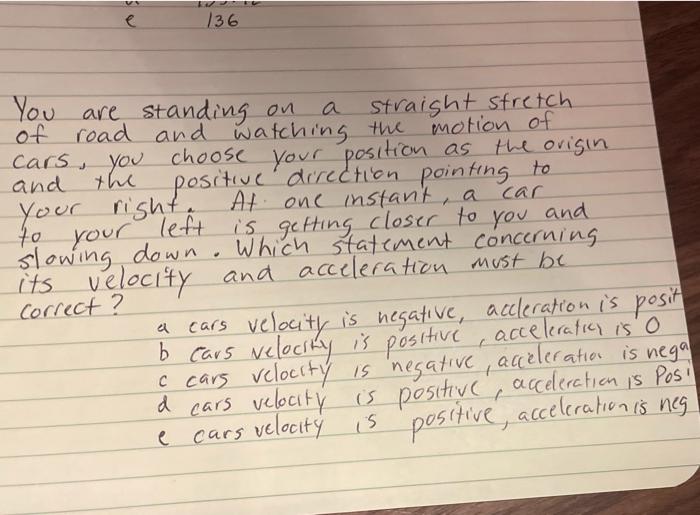 e 136
You are standing on a straight stretch
of road and watching the motion of
cars, you choose your position as the origin
and the positive direction pointing to
your right. At one instant, a car
to your left is getting closer to you and
slowing down. Which statement concerning
its velocity and acceleration must be
correct?
a cars velocity is negative, accleration is posit
b cars velocity is positive, acceleration is 0
c cars velocity is negative, acceleration is nega
d cars velocity is positive, acceleration is Posi
e cars velocity is positive, acceleration is neg